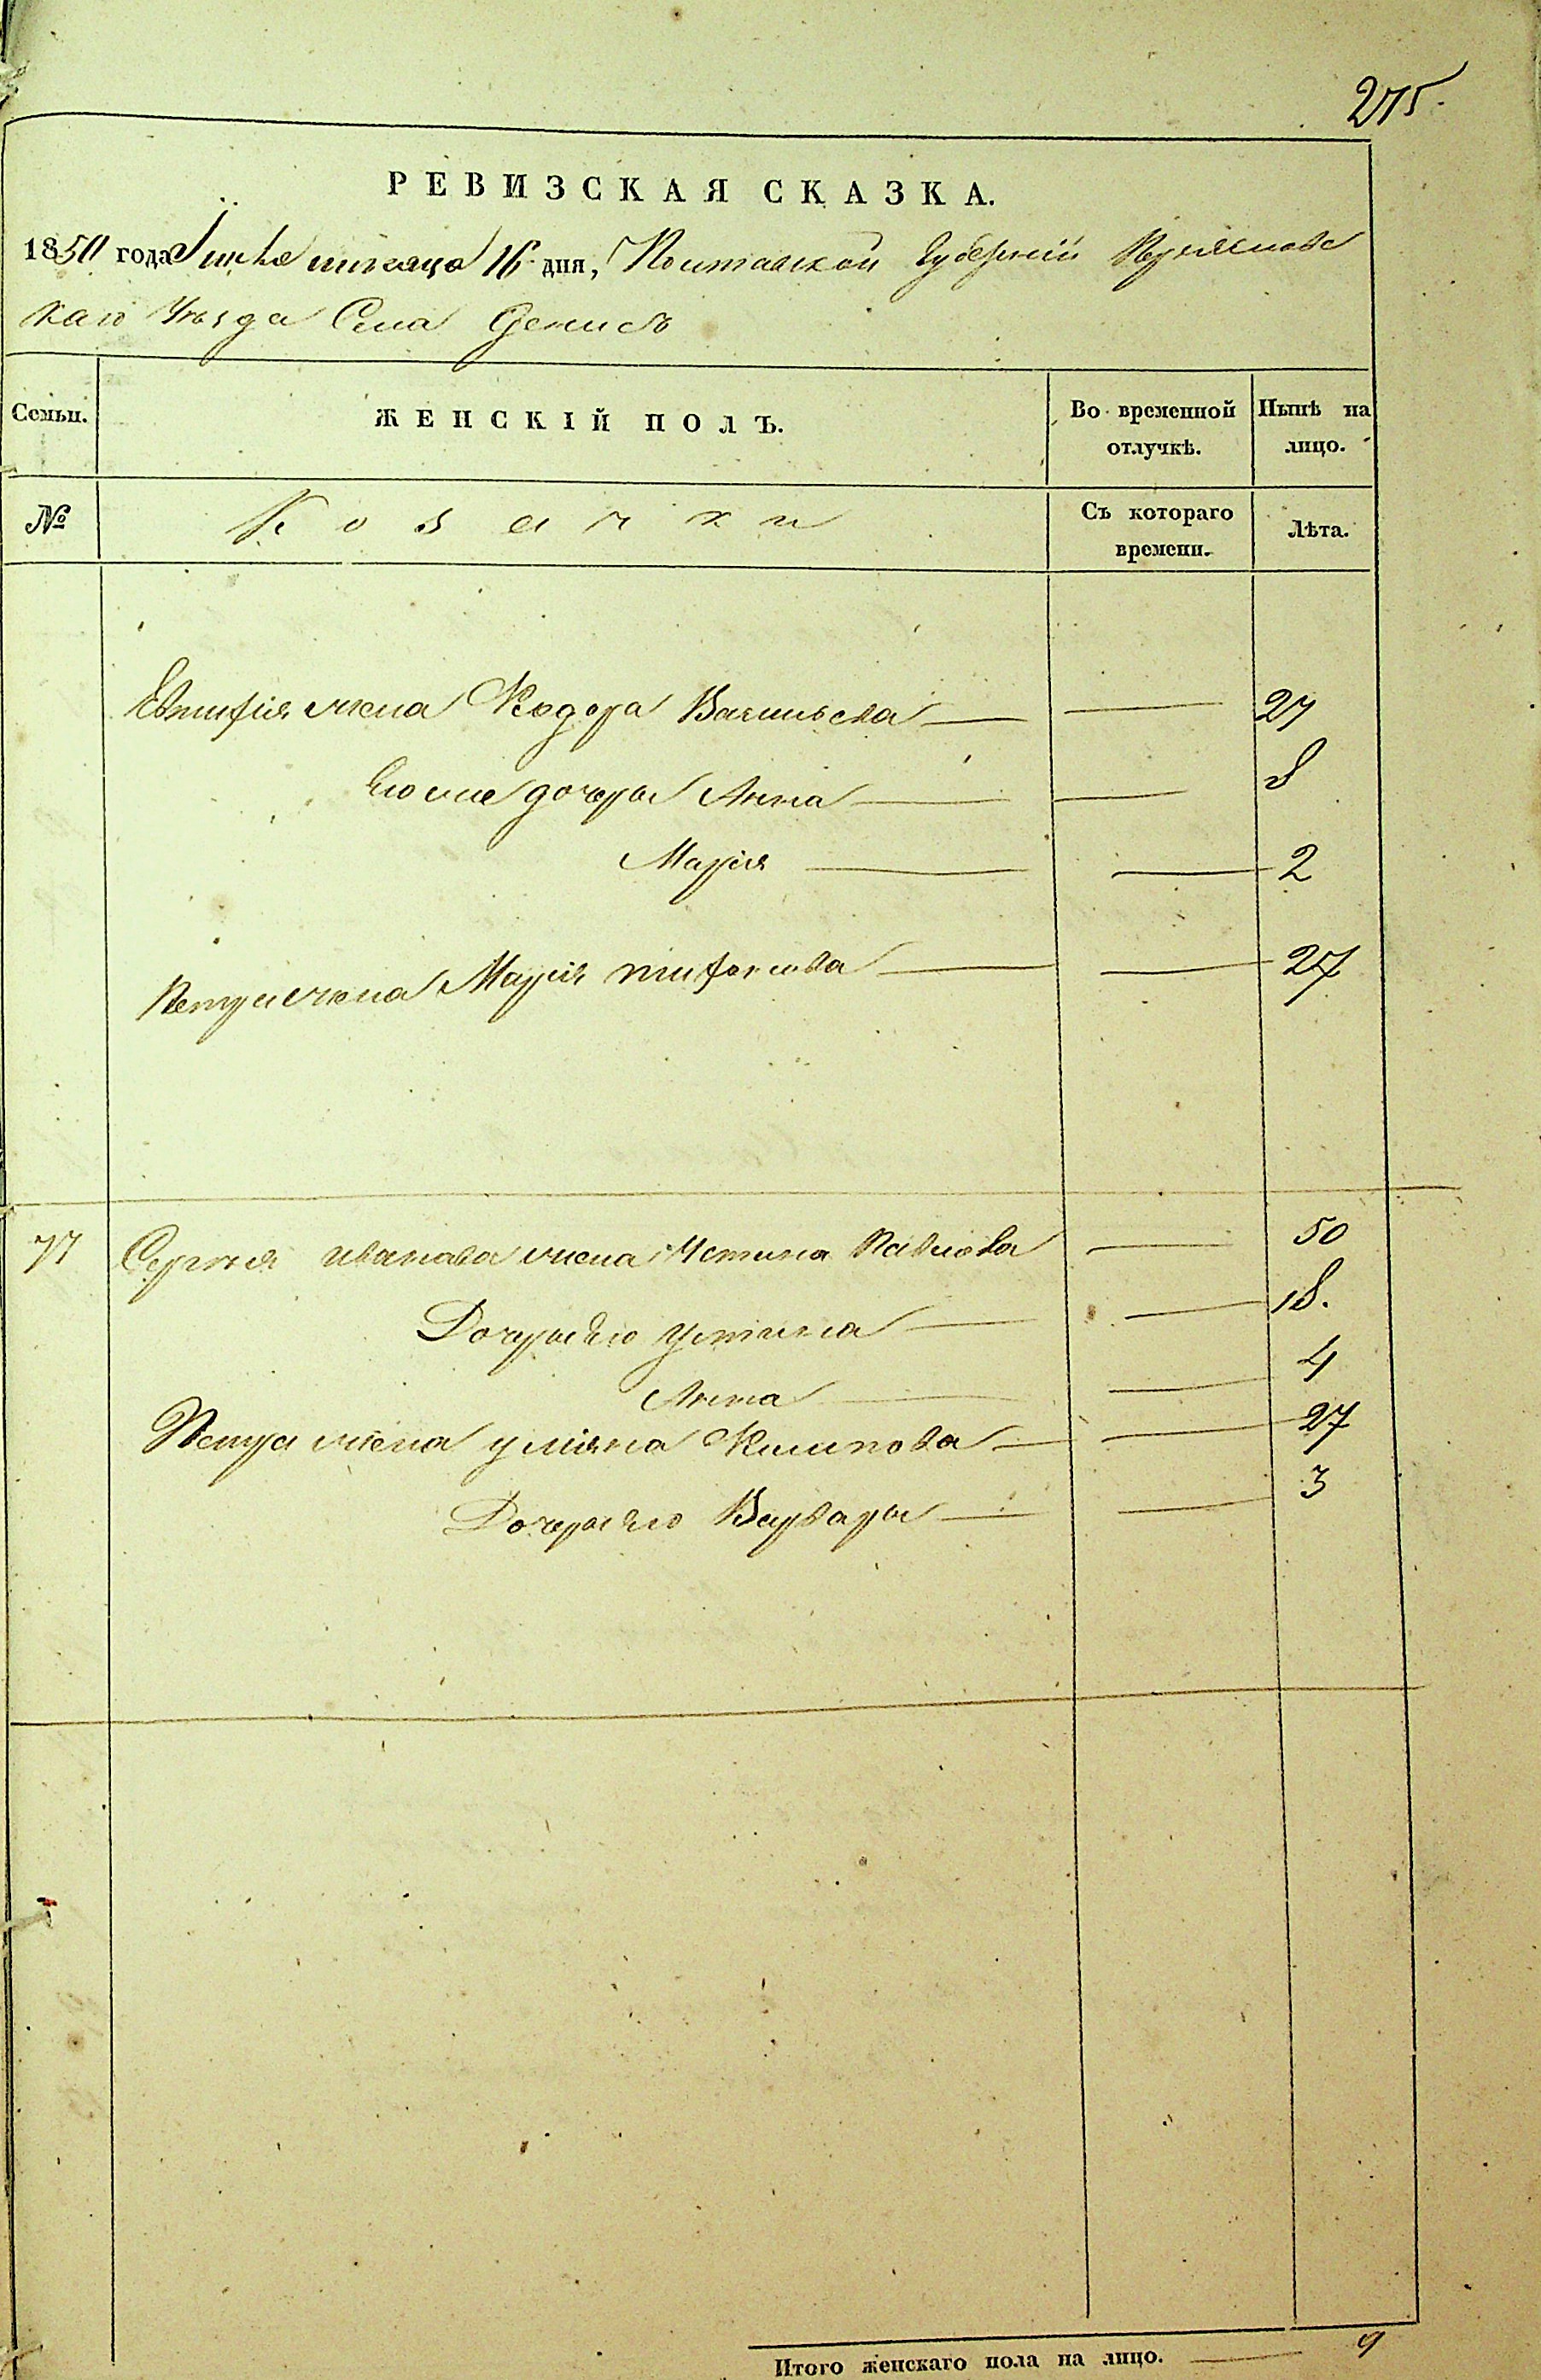 275.
РЕВИЗСКАЯ СКАЗКА.
1850 года Іюня месяца 16 дня, Полтавской Губерніи Переяславс
каго Уѣзда Села Денисъ
Семьи. ЖЕНСКІЙ ПОЛЪ. Во временной отлучкѣ. Нынѣ на лицо.
№ Козачки Съ котораго времени. Лѣта.
жена Ѳодора Васильева 27
Его же дочеры Анна 8
Марія 2
Петра жена Марія 27
77 Сергѣя Иванова жена Устина Павлова 50
Дочеры Его Устина 18.
Анна 4
Петра жена Уліяна 27
Дочеры Его Варвара 3
Итого женскаго пола на лицо. 9